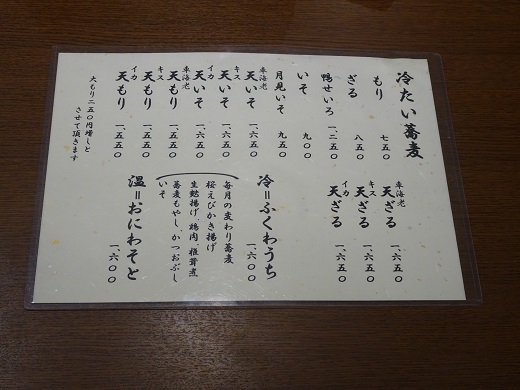 冷たい蕎麦
もり 七五〇
ざる 八五〇
鴨せいろ 一、二五〇
いそ 九〇〇
月見いそ 九五〇
車海老 天いそ 一、六五〇
キス 天いそ 一、六五〇
イカ 天いそ 一、六五〇
車海老 天もり 一、五五〇
キス 天もり 一、五五〇
イカ 天もり 一、五五〇
大もり二五〇円増しと
させて頂きます
車海老 天ざる 一、六五〇
キス 天ざる 一、六五〇
イカ 天ざる 一、六五〇
冷=ふくわうち 一、六〇〇
毎月の変わり蕎麦
桜えびかき揚げ
生麩揚げ 鶏肉 椎茸煮
蕎麦もやし、かつおぶし
いそ
温=おにわそと 一、六〇〇